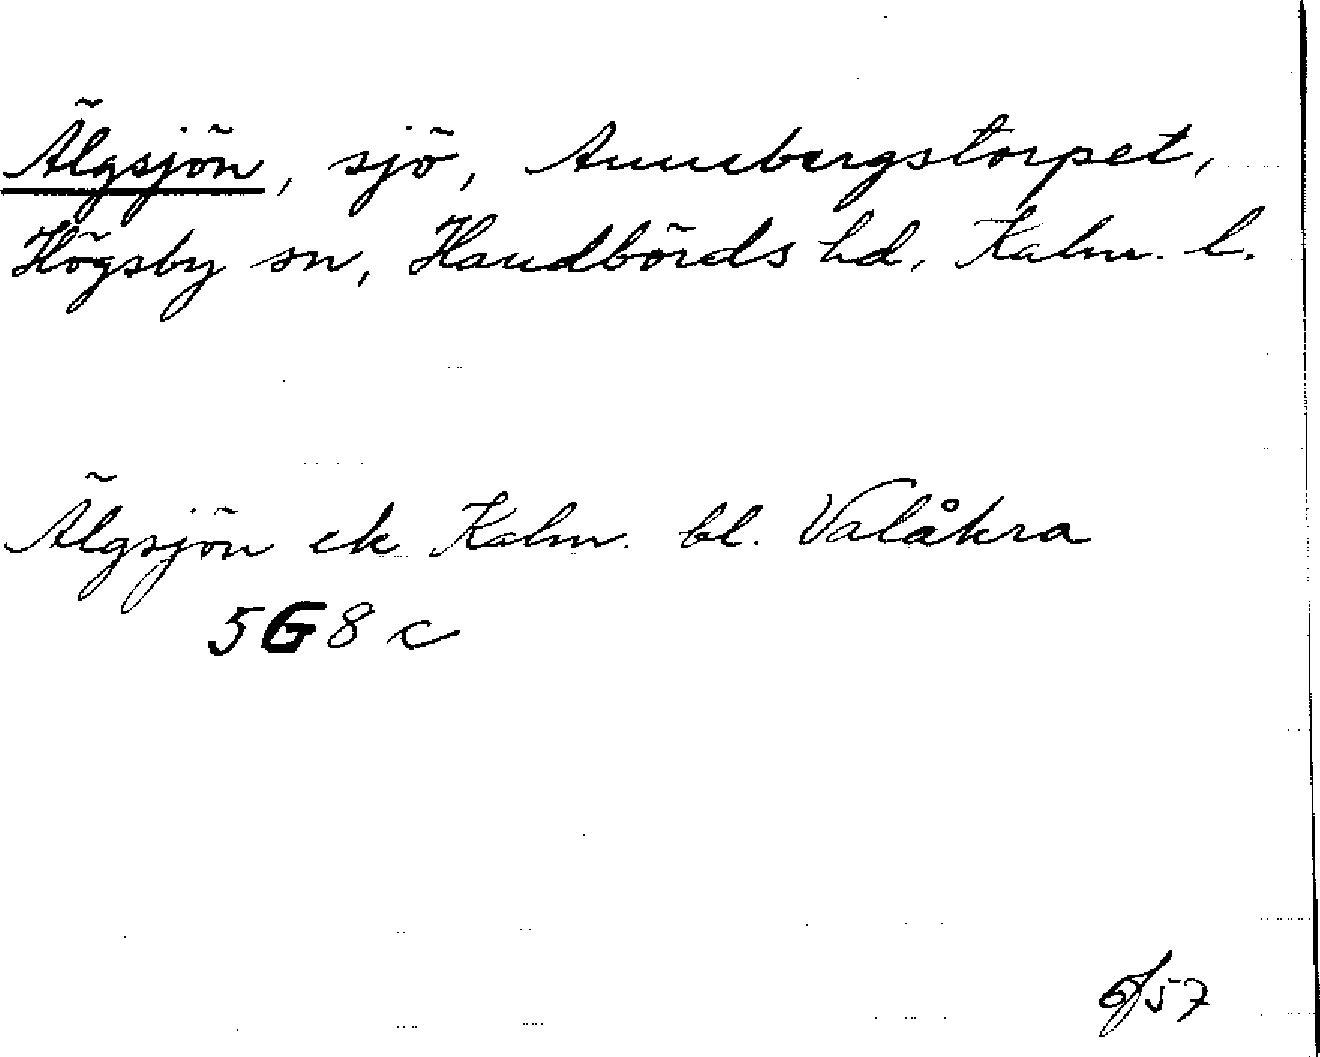 Älgsjön, sjö, Annebergstorpet,
Högsby sn, Handbörds hd, Kalm. l.
Älgsjön ek Kalm. bl. Valåkra
5G8c
6/57